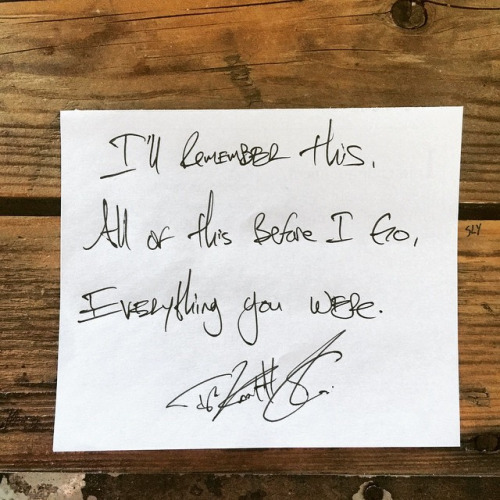 I'll Remember this.
All of this Before I Go,
SLY
Everything you were.